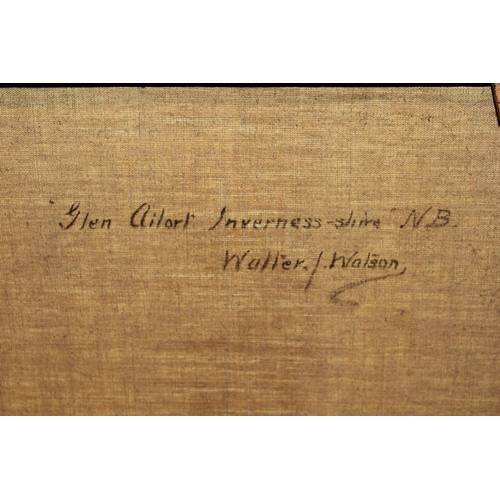 "Glen Ailort Inverness-shire" N.B.
Walter. J. Watson,